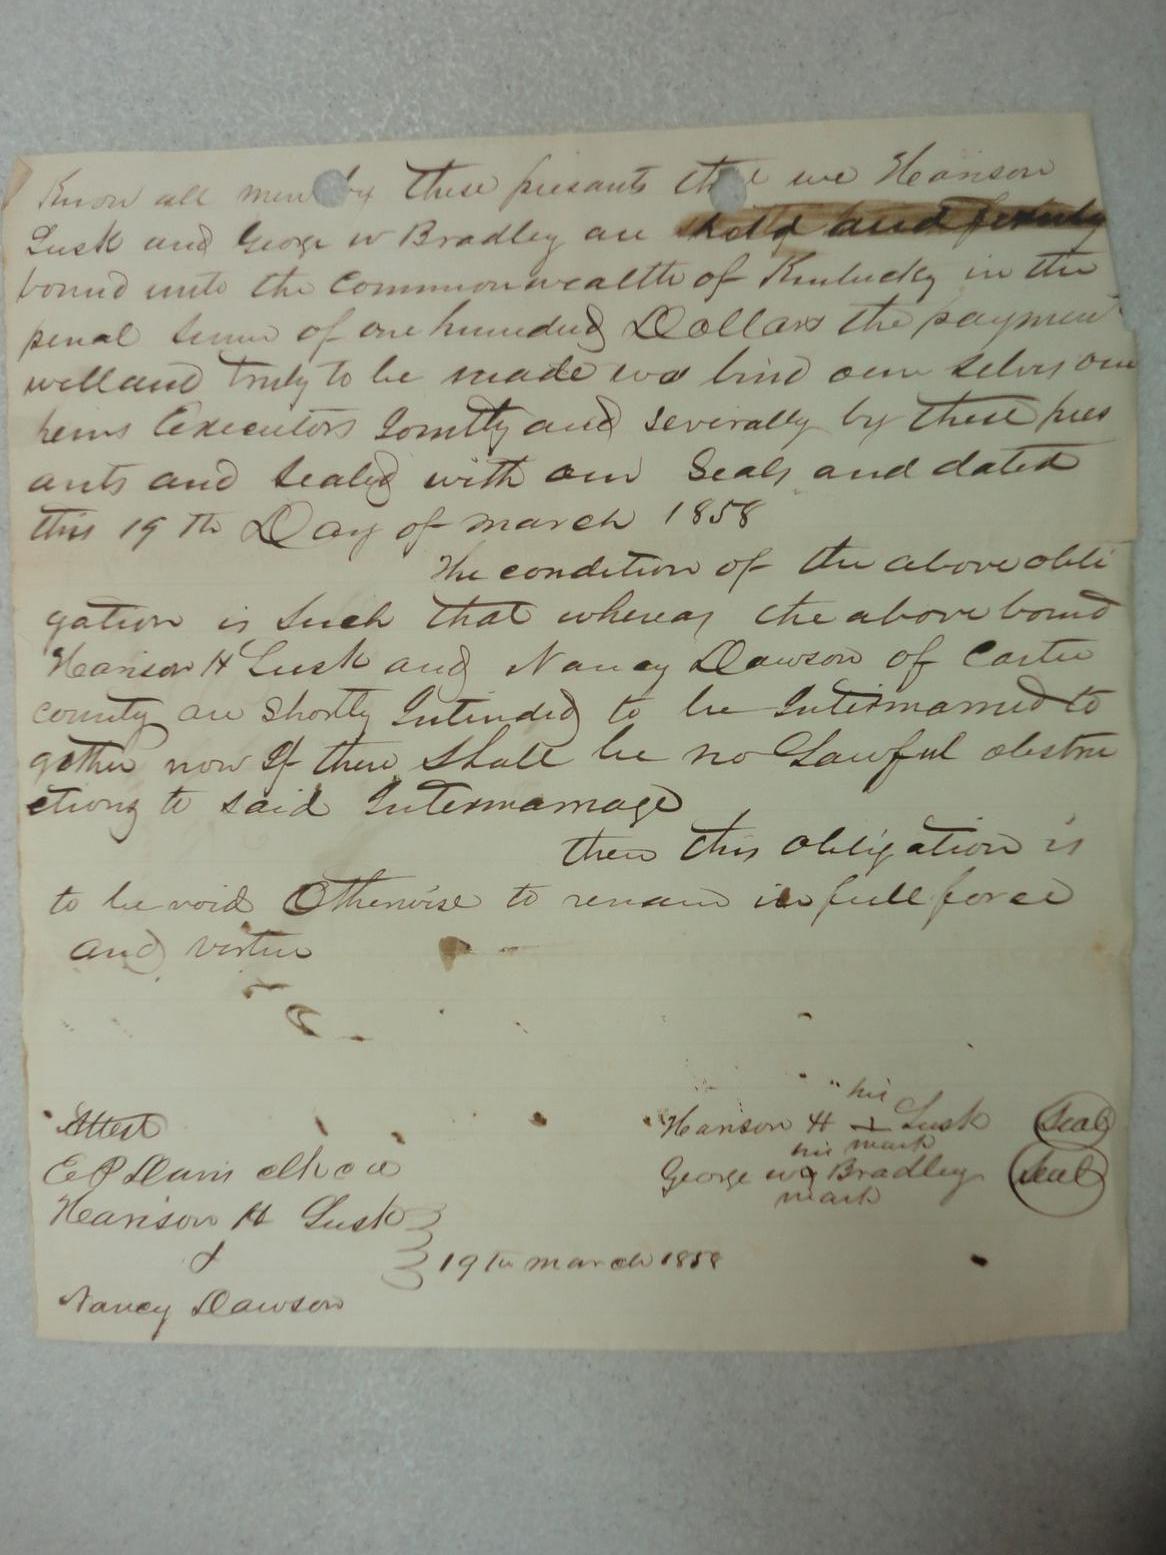 Know all men by these presants that we Harison
Lusk and George W Bradley are held and firmly
bound unto the Commonwealth of Kentucky in the
penal sum of one hundred Dollars the payment
well and truly to be made we bind our selves our
heirs Executors Jointly and severally by these pres
ants and sealed with our Seals and dated
this 19th Day of march 1858
The condition of the above obli
gation is such that whereas the above bound
Harison H Lusk and Nancy Dawson of Carter
county are shortly Intended to be Intermarried to
gether now If there shall be no Lawful obstru
ctions to said Intermarriage
then this obligation is
to be void Otherwise to remain in full force
and virtue
his
Attest Harison H + Lusk Seal
his mark
E P Davis clk c c George W x Bradley Seal
mark
Harison H Lusk
& 19th march 1858
Nancy Dawson